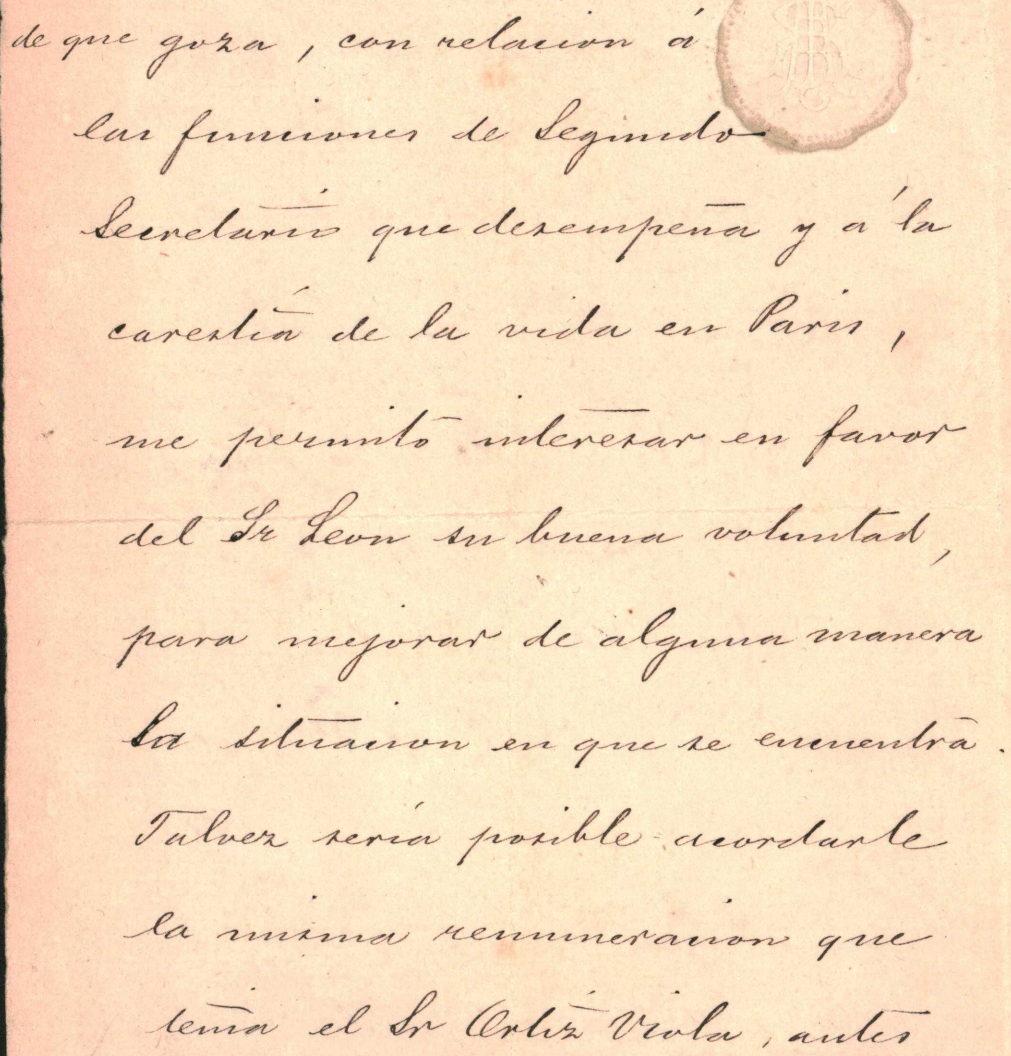 de que goza, con relacion á
las funciones de Segundo
Secretario que desempeña y á la
carestía de la vida en Paris,
me permito interesar en favor
del Sr Leon su buena voluntad,
para mejorar de alguna manera
la situacion en que se encuentra.
Talvez sería posible acordarle
la misma remuneracion que
tenia el Sr Ortiz Viola, antes